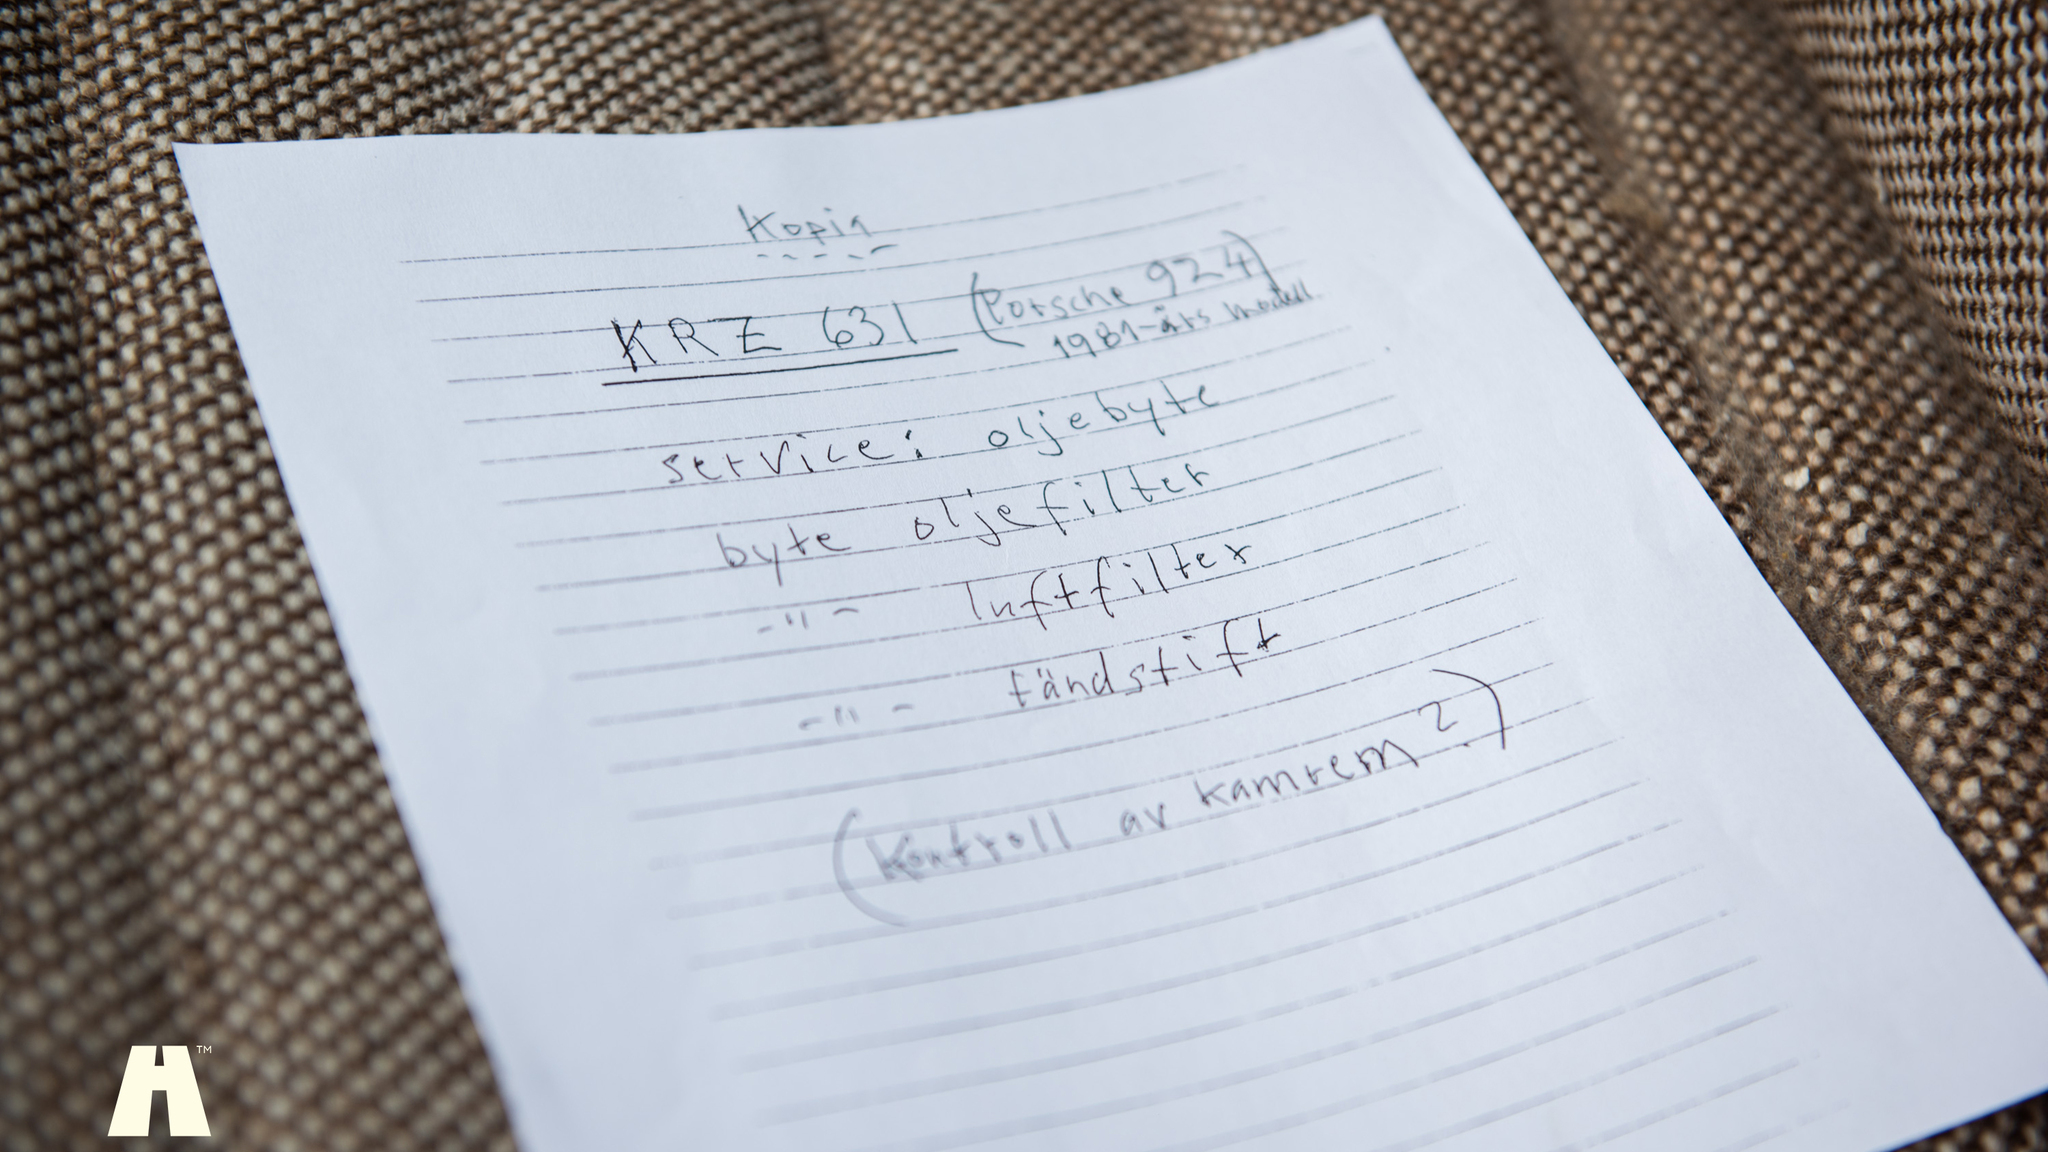 Kopia
KRZ 631 (Porsche 924)
1981-års modell
service: oljebyte
byte oljefilter
-"- luftfilter
-"- tändstift
(Kontroll av kamrem?)
H™